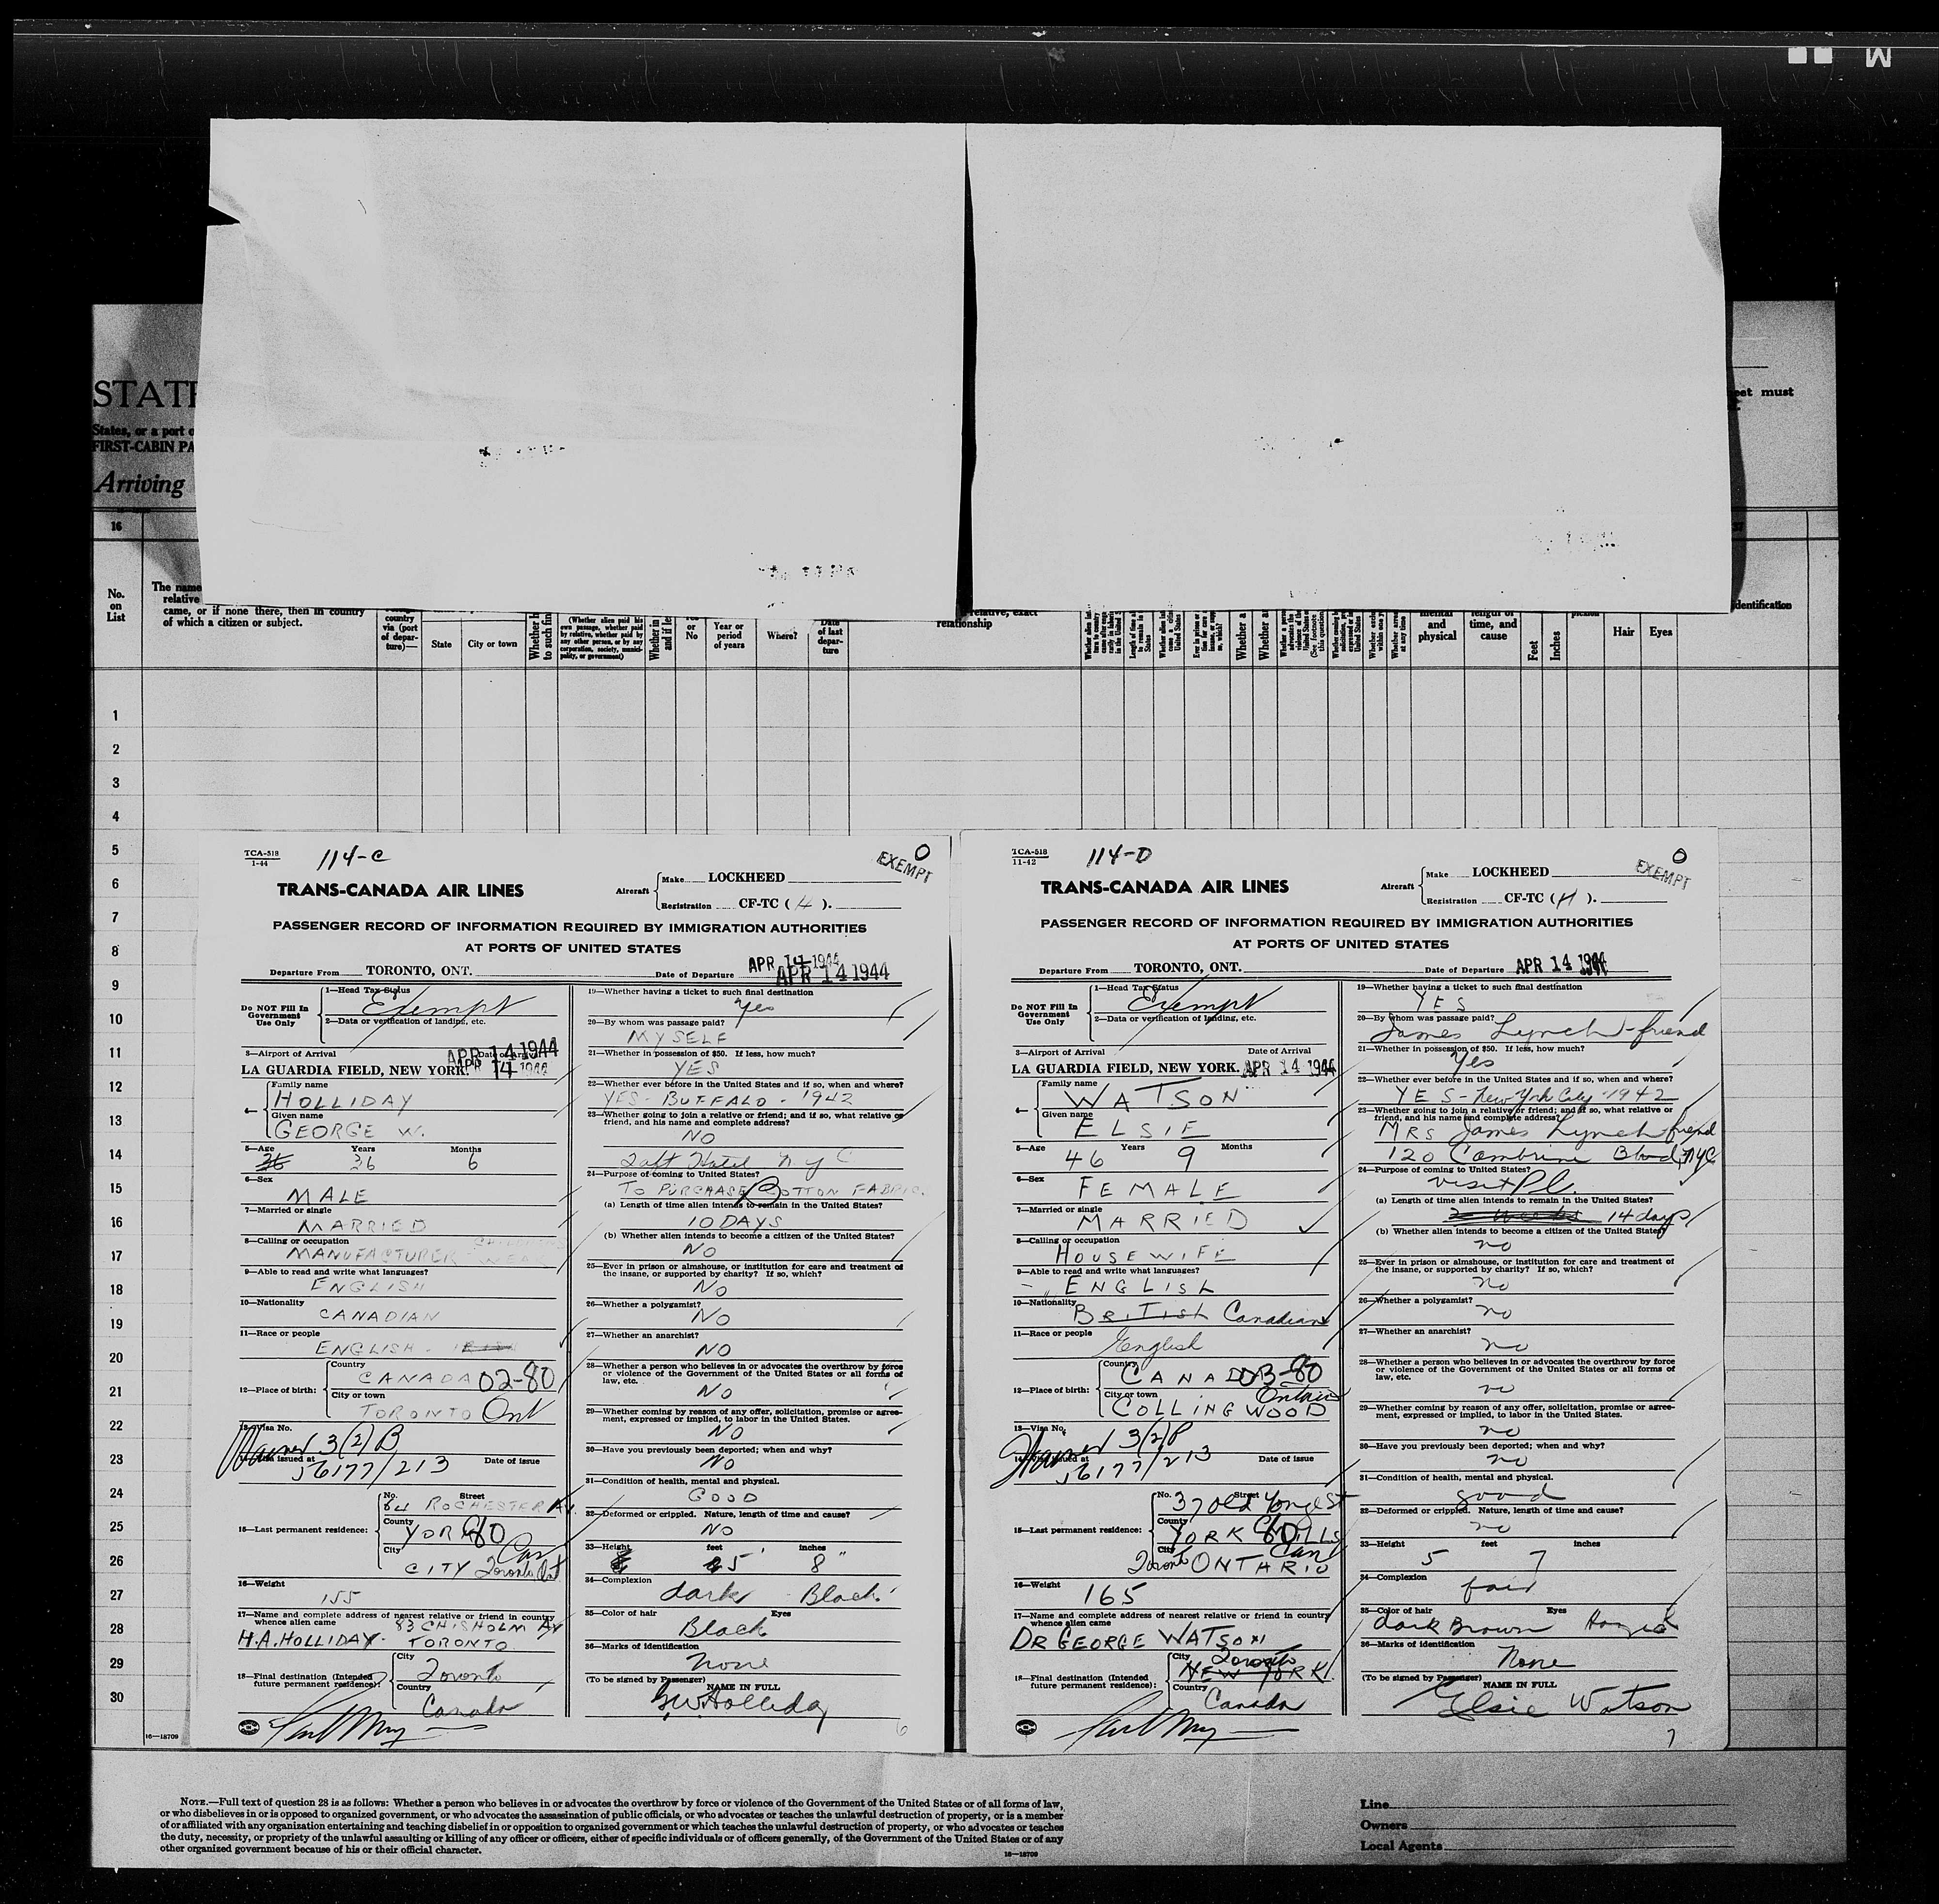 M
STATE
States, or a port o
FIRST-CABIN PA
Arriving
eet must
16
No. on List
The name
relative
came, or if none there, then in country
of which a citizen or subject.
country via (port of departure)—
State
City or town
(Whether alien paid his own passage, whether paid by relative, whether paid by any other person, or by any corporation, society, municipality, or government)
or No
Year or period of years
Where?
Date of last departure
relative, exact
relationship
mental and physical
length of time, and cause
Feet
Inches
Hair
Eyes
identification
1
2
3
4
5
6
7
8
9
10
11
12
13
14
15
16
17
18
19
20
21
22
23
24
25
26
27
28
29
30
TCA-518
1-44
114-C
O
EXEMPT
TRANS-CANADA AIR LINES
Aircraft Make LOCKHEED
Registration CF-TC ( H ).
PASSENGER RECORD OF INFORMATION REQUIRED BY IMMIGRATION AUTHORITIES
AT PORTS OF UNITED STATES
Departure From TORONTO, ONT. Date of Departure APR 14 1944
APR 14 1944
Do NOT Fill In Government Use Only
1—Head Tax Status
Exempt
2—Data or verification of landing, etc.
3—Airport of Arrival Date of Arrival
APR 14 1944
LA GUARDIA FIELD, NEW YORK. APR 14 1944
4—
Family name
HOLLIDAY
Given name
GEORGE W.
5—Age Years Months
36 36 6
6—Sex
MALE
7—Married or single
MARRIED
8—Calling or occupation
MANUFACTURER CHILDRENS WEAR
9—Able to read and write what languages?
ENGLISH
10—Nationality
CANADIAN
11—Race or people
ENGLISH - IRISH
12—Place of birth:
Country
CANADA 02-80
City or town
TORONTO Ont
13—Visa No.
Waiver 3(2)B
issued at Date of issue
56177/213
15—Last permanent residence:
No. Street
64 ROCHESTER AV.
County
YORK 80
City Can
CITY Toronto Ont
16—Weight
155
17—Name and complete address of nearest relative or friend in country
whence alien came 83 CHISHOLM AV
H.A. HOLLIDAY - TORONTO
18—Final destination (Intended future permanent residence):
City
Toronto
Country
Canada
19—Whether having a ticket to such final destination
Yes
20—By whom was passage paid?
MYSELF
21—Whether in possession of $50. If less, how much?
YES
22—Whether ever before in the United States and if so, when and where?
YES - BUFFALO - 1942
23—Whether going to join a relative or friend; and if so, what relative or
friend, and his name and complete address?
NO
Taft Hotel N.Y.C
24—Purpose of coming to United States?
TO PURCHASE COTTON FABRIC.
B
(a) Length of time alien intends to remain in the United States?
10 DAYS
(b) Whether alien intends to become a citizen of the United States?
NO
25—Ever in prison or almshouse, or institution for care and treatment of
the insane, or supported by charity? If so, which?
NO
26—Whether a polygamist?
NO
27—Whether an anarchist?
NO
28—Whether a person who believes in or advocates the overthrow by force
or violence of the Government of the United States or all forms of
law, etc.
NO
29—Whether coming by reason of any offer, solicitation, promise or agree-
ment, expressed or implied, to labor in the United States.
NO
30—Have you previously been deported; when and why?
NO
31—Condition of health, mental and physical.
GOOD
32—Deformed or crippled. Nature, length of time and cause?
NO
33—Height feet inches
5' 8"
34—Complexion
dark Black
35—Color of hair Eyes
Black
36—Marks of identification
none
(To be signed by Passenger)
NAME IN FULL
G.W. Holliday
6
TCA-518
11-42
114-D
O
EXEMPT
TRANS-CANADA AIR LINES
Aircraft Make LOCKHEED
Registration CF-TC ( H ).
PASSENGER RECORD OF INFORMATION REQUIRED BY IMMIGRATION AUTHORITIES
AT PORTS OF UNITED STATES
Departure From TORONTO, ONT. Date of Departure APR 14 1944
Do NOT Fill In Government Use Only
1—Head Tax Status
Exempt
2—Data or verification of landing, etc.
3—Airport of Arrival Date of Arrival
LA GUARDIA FIELD, NEW YORK. APR 14 1944
4—
Family name
WATSON
Given name
ELSIE
5—Age Years Months
46 9
6—Sex
FEMALE
7—Married or single
MARRIED
8—Calling or occupation
HOUSEWIFE
9—Able to read and write what languages?
ENGLISH
10—Nationality
British Canadian
11—Race or people
English
12—Place of birth:
Country
CANADA 03-80
City or town Ontario
COLLINGWOOD
13—Visa No.
Waiver 3(2)B
14— issued at Date of issue
56177/213
15—Last permanent residence:
No. Street
37 Old Yonge St
County
YORK MILLS 80
City Can
Toronto ONTARIO
16—Weight
165
17—Name and complete address of nearest relative or friend in country
whence alien came
DR GEORGE WATSON
18—Final destination (Intended future permanent residence):
City Toronto
NEW YORK
Country
Canada
19—Whether having a ticket to such final destination
YES
20—By whom was passage paid?
James Lynch - friend
21—Whether in possession of $50. If less, how much?
Yes
22—Whether ever before in the United States and if so, when and where?
YES - New York City - 1942
23—Whether going to join a relative or friend; and if so, what relative or
friend, and his name and complete address?
MRS James Lynch friend
120 Cambrine Blvd, NYC
24—Purpose of coming to United States?
visit Pl.
(a) Length of time alien intends to remain in the United States?
2 weeks 14 days
(b) Whether alien intends to become a citizen of the United States?
no
25—Ever in prison or almshouse, or institution for care and treatment of
the insane, or supported by charity? If so, which?
no
26—Whether a polygamist?
no
27—Whether an anarchist?
no
28—Whether a person who believes in or advocates the overthrow by force
or violence of the Government of the United States or all forms of
law, etc.
no
29—Whether coming by reason of any offer, solicitation, promise or agree-
ment, expressed or implied, to labor in the United States.
no
30—Have you previously been deported; when and why?
no
31—Condition of health, mental and physical.
good
32—Deformed or crippled. Nature, length of time and cause?
no
33—Height feet inches
5 7
34—Complexion
fair
35—Color of hair Eyes
dark Brown Hazel
36—Marks of identification
None
(To be signed by Passenger)
NAME IN FULL
Elsie Watson
7
16—18709
NOTE.—Full text of question 28 is as follows: Whether a person who believes in or advocates the overthrow by force or violence of the Government of the United States or of all forms of law,
or who disbelieves in or is opposed to organized government, or who advocates the assassination of public officials, or who advocates or teaches the unlawful destruction of property, or is a member
of or affiliated with any organization entertaining and teaching disbelief in or opposition to organized government or which teaches the unlawful destruction of property, or who advocates or teaches
the duty, necessity, or propriety of the unlawful assaulting or killing of any officer or officers, either of specific individuals or of officers generally, of the Government of the United States or of any
other organized government because of his or their official character.
16—18709
Line
Owners
Local Agents